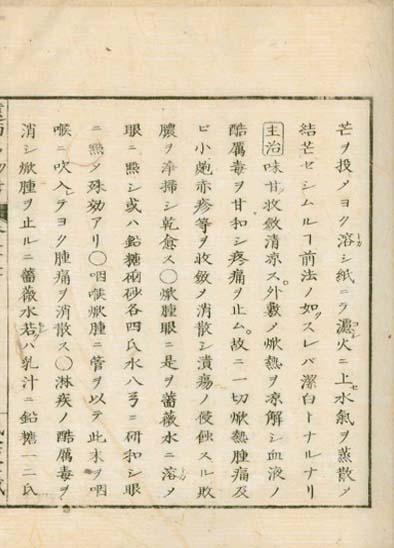 芒ヲ投メヨク溶シ紙ニテ濾火ニ上セ水氣ヲ蒸散メ
結芒セシムルヿ前法ノ如クスレバ潔白トナルナリ
主治味甘收斂清凉ス。外敷メ焮熱ヲ凉解シ血液ノ
酷厲毒ヲ甘和シ疼痛ヲ止ム。故ニ一切焮熱腫痛及
ビ小皰赤疹等ヲ收斂メ消散シ潰瘍ノ侵蝕スル敗
膿ヲ淨掃シ乾愈ス○焮腫眼ニ是ヲ薔薇水ニ溶メ
眼ニ點シ或ハ鉛糖硇砂各四氏水八弓ニ研和シ眼
ニ點メ殊効アリ○咽喉焮腫ニ管ヲ以テ此末ヲ咽
喉ニ吹入レテヨク腫痛ヲ消散ス○淋疾ノ酷厲毒ヲ
消シ焮腫ヲ止ルニ薔薇水若クハ乳汁ニ鉛糖一二氏